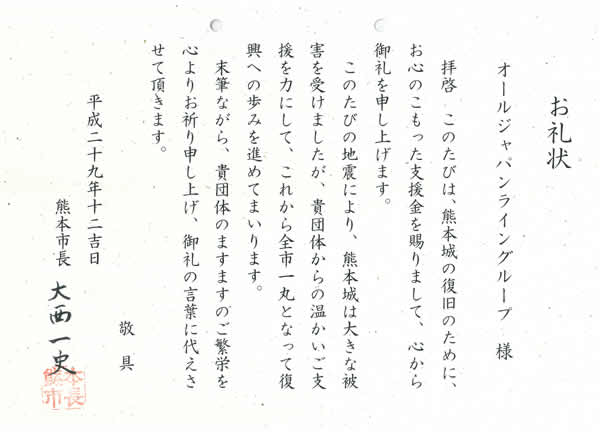 お礼状
オールジャパンライングループ　様
拝啓　このたびは、熊本城の復旧のために、
お心のこもった支援金を賜りまして、心から
御礼を申し上げます。
このたびの地震により、熊本城は大きな被
害を受けましたが、貴団体からの温かいご支
援を力にして、これから全市一丸となって復
興への歩みを進めてまいります。
末筆ながら、貴団体のますますのご繁栄を
心よりお祈り申し上げ、御礼の言葉に代えさ
せて頂きます。
敬具
平成二十九年十二吉日
熊本市長　大西一史
熊本市長